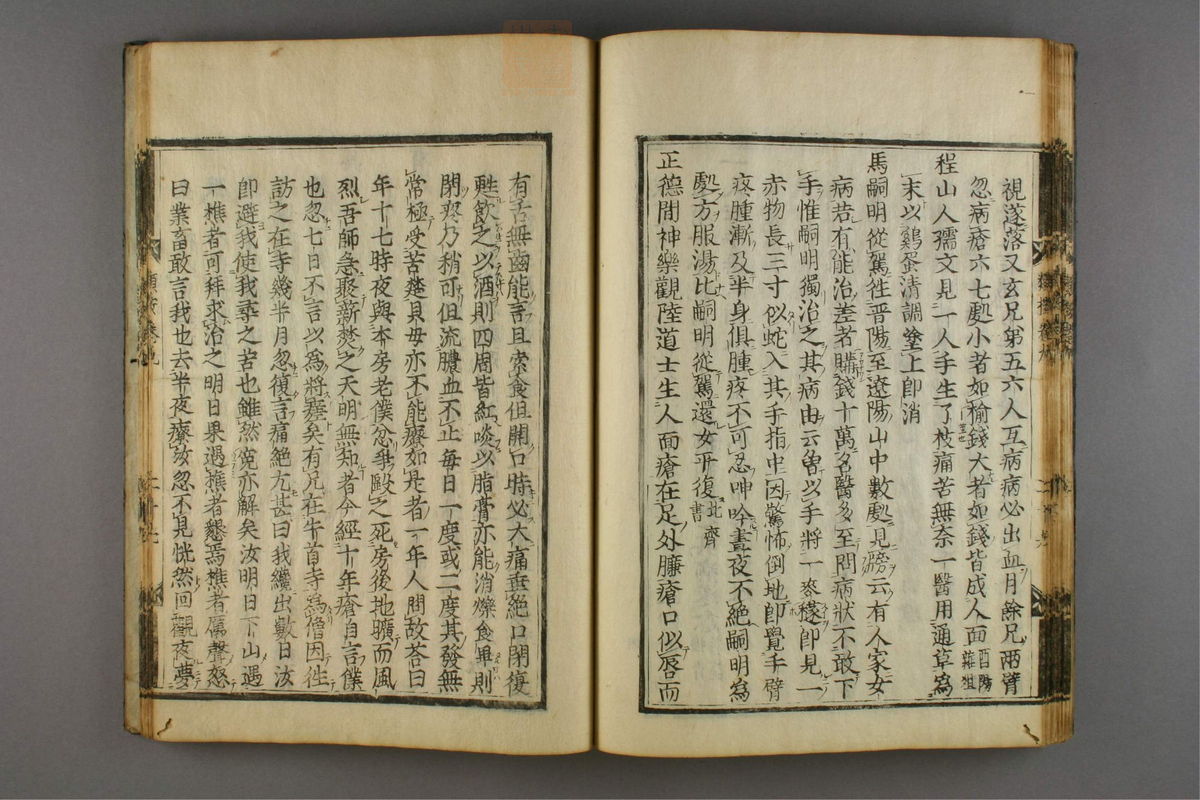 視遂落又玄兄弟五六人互病病必出血月餘兄兩臂
忽病瘡六七處小者如榆錢大者如錢皆成人面酉陽雜俎
程山人孺文見一人手生了枝痛苦無奈一醫用通草為
末以鷄蛋清調塗上即消
馬嗣明從駕徃晋陽至遼陽山中數處見牓云有人家女
病若有能治差者購錢十萬名醫多至問病狀不敢下
手惟嗣明獨治之其病由云曽以手將一麥穟即見一
赤物長三寸似蛇入其手指中因驚怖倒地即覺手臂
疼腫漸及半身俱腫疼不可忍呻吟晝夜不絕嗣明為
處方服湯比嗣明從駕還女平復北齊書
正德間神樂觀陸道士生人面瘡在足外臁瘡口似唇而
有舌無齒能言且索食但開口時必大痛垂絕口閉復
甦飲之以酒則四周皆紅啖以脂膏亦能消爍食畢則
閉疼乃稍可但流膿血不止每日一度或二度其發無
常極受苦楚貝母亦不能療如是者一年人問故荅曰
年十七時夜與本房老僕忿爭毆之死房後地曠而風
烈吾師急聚薪焚之天明無知者今經十年瘡自言僕
也忽七日不言以為將瘥矣有兄在牛首寺為僧因徃
訪之在寺幾半月忽復言痛絕尤甚曰我纔出數日汝
即避我使我尋之苦也雖然寃亦解矣汝明日下山遇
一樵者可拜求治之明日果遇樵者懇焉樵者厲聲怒
曰業畜敢言我也去半夜療汝忽不見恍然回觀夜夢